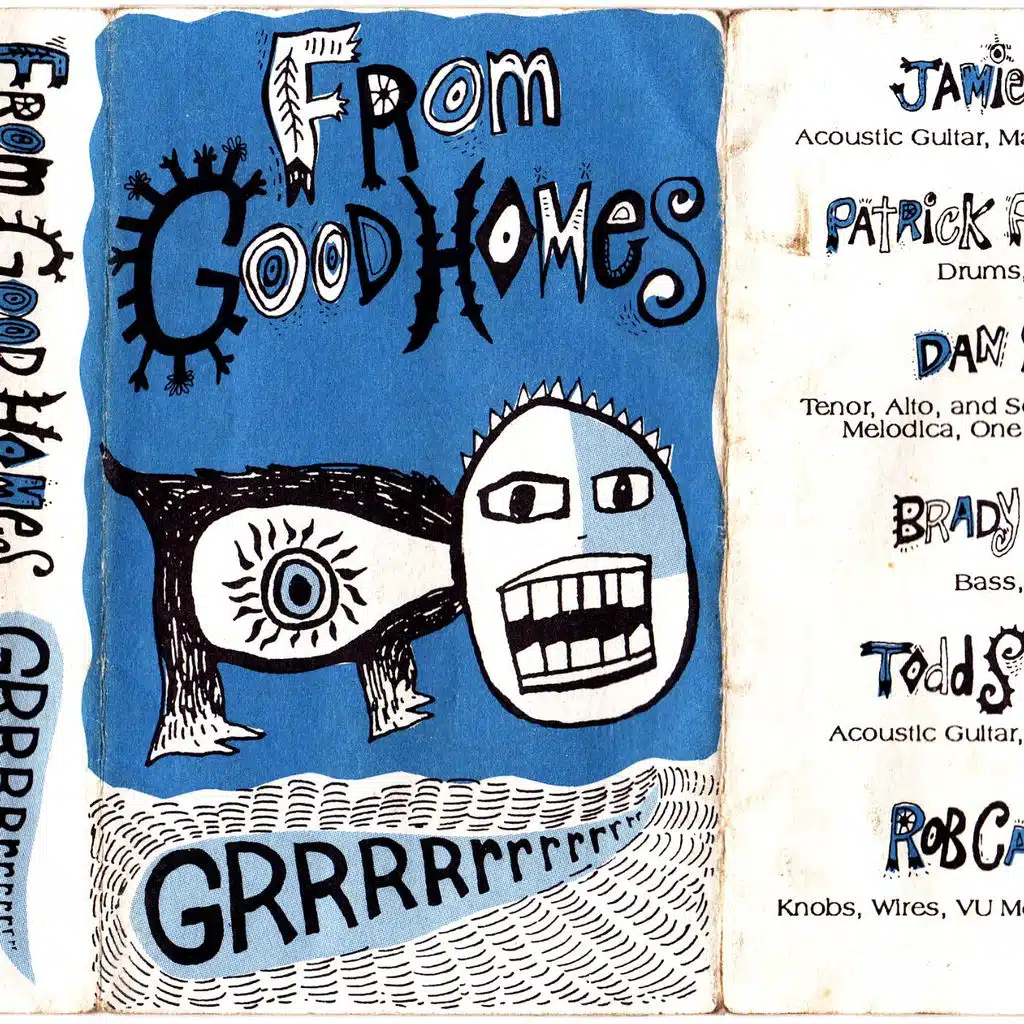 FROM GOOD HOMES GRRRRrrrrrrrr
FROM
GOOD HOMES
GRRRRrrrrrrrrr
JAMIE
Acoustic Guitar,
PATRICK
Drums,
DAN
Tenor, Alto, and
Melodica, One
BRADY
Bass,
TODD
Acoustic Guitar,
ROB
Knobs, Wires, VU